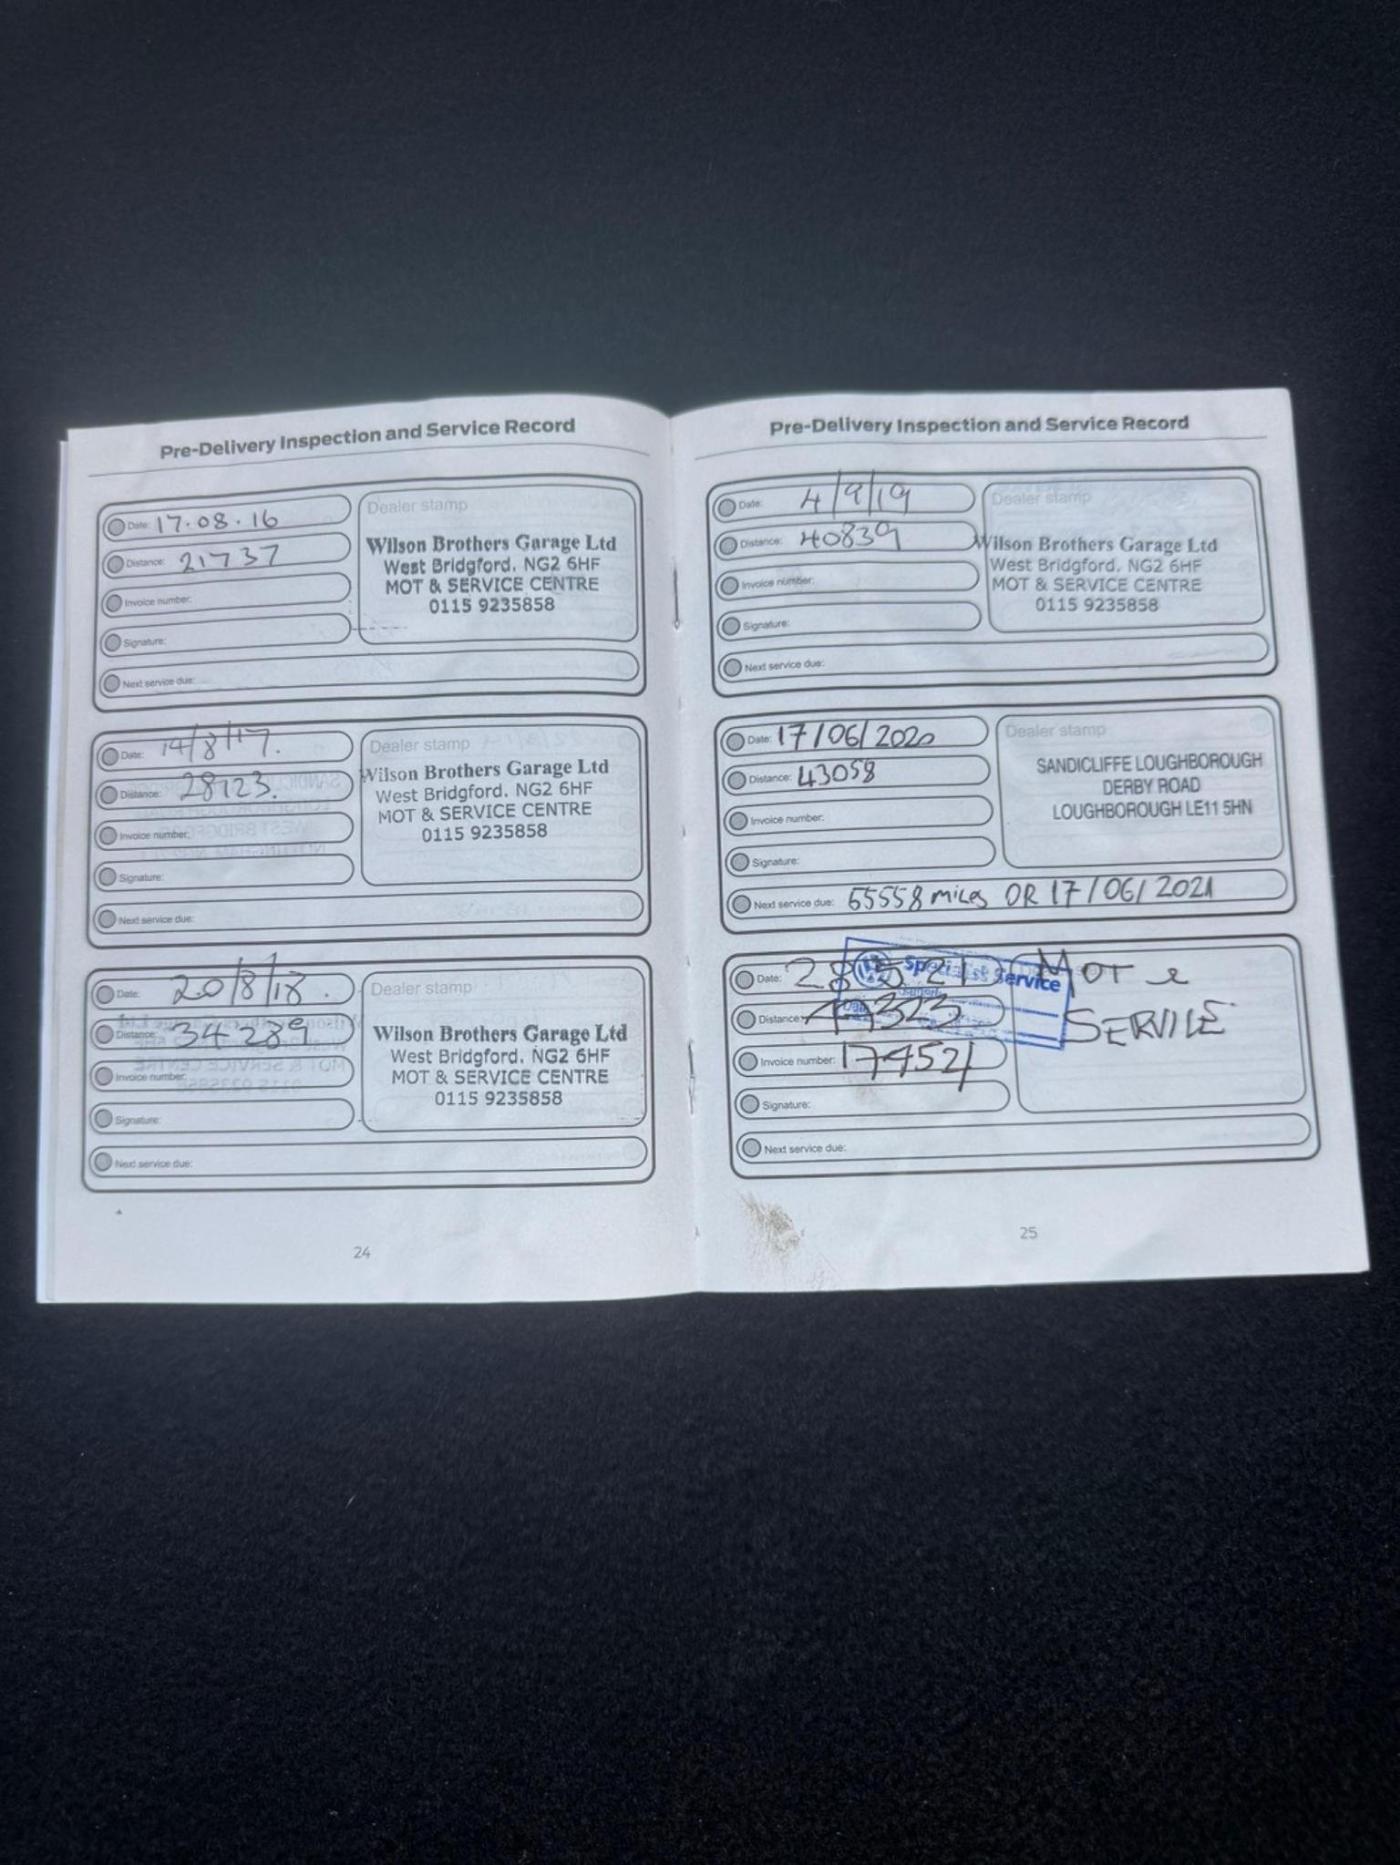 Pre-Delivery Inspection and Service Record
Date: 17.08.16
Distance: 21737
Invoice number:
Signature:
Next service due:
Dealer stamp
Wilson Brothers Garage Ltd
West Bridgford. NG2 6HF
MOT & SERVICE CENTRE
0115 9235858
Date: 14/8/17.
Distance: 28123.
Invoice number:
Signature:
Next service due:
Dealer stamp
Wilson Brothers Garage Ltd
West Bridgford. NG2 6HF
MOT & SERVICE CENTRE
0115 9235858
Date: 20/8/18.
Distance: 34289
Invoice number:
Signature:
Next service due:
Dealer stamp
Wilson Brothers Garage Ltd
West Bridgford. NG2 6HF
MOT & SERVICE CENTRE
0115 9235858
24
Pre-Delivery Inspection and Service Record
Date: 4/9/19
Distance: 40839
Invoice number:
Signature:
Next service due:
Dealer stamp
Wilson Brothers Garage Ltd
West Bridgford. NG2 6HF
MOT & SERVICE CENTRE
0115 9235858
Date: 17/06/2020
Distance: 43058
Invoice number:
Signature:
Next service due: 55558 miles OR 17/06/2021
Dealer stamp
SANDICLIFFE LOUGHBOROUGH
DERBY ROAD
LOUGHBOROUGH LE11 5HN
Date: 28 5 21
Distance:
Invoice number: 174521
Signature:
Next service due:
Specialist Service
MOT e
SERVICE
25